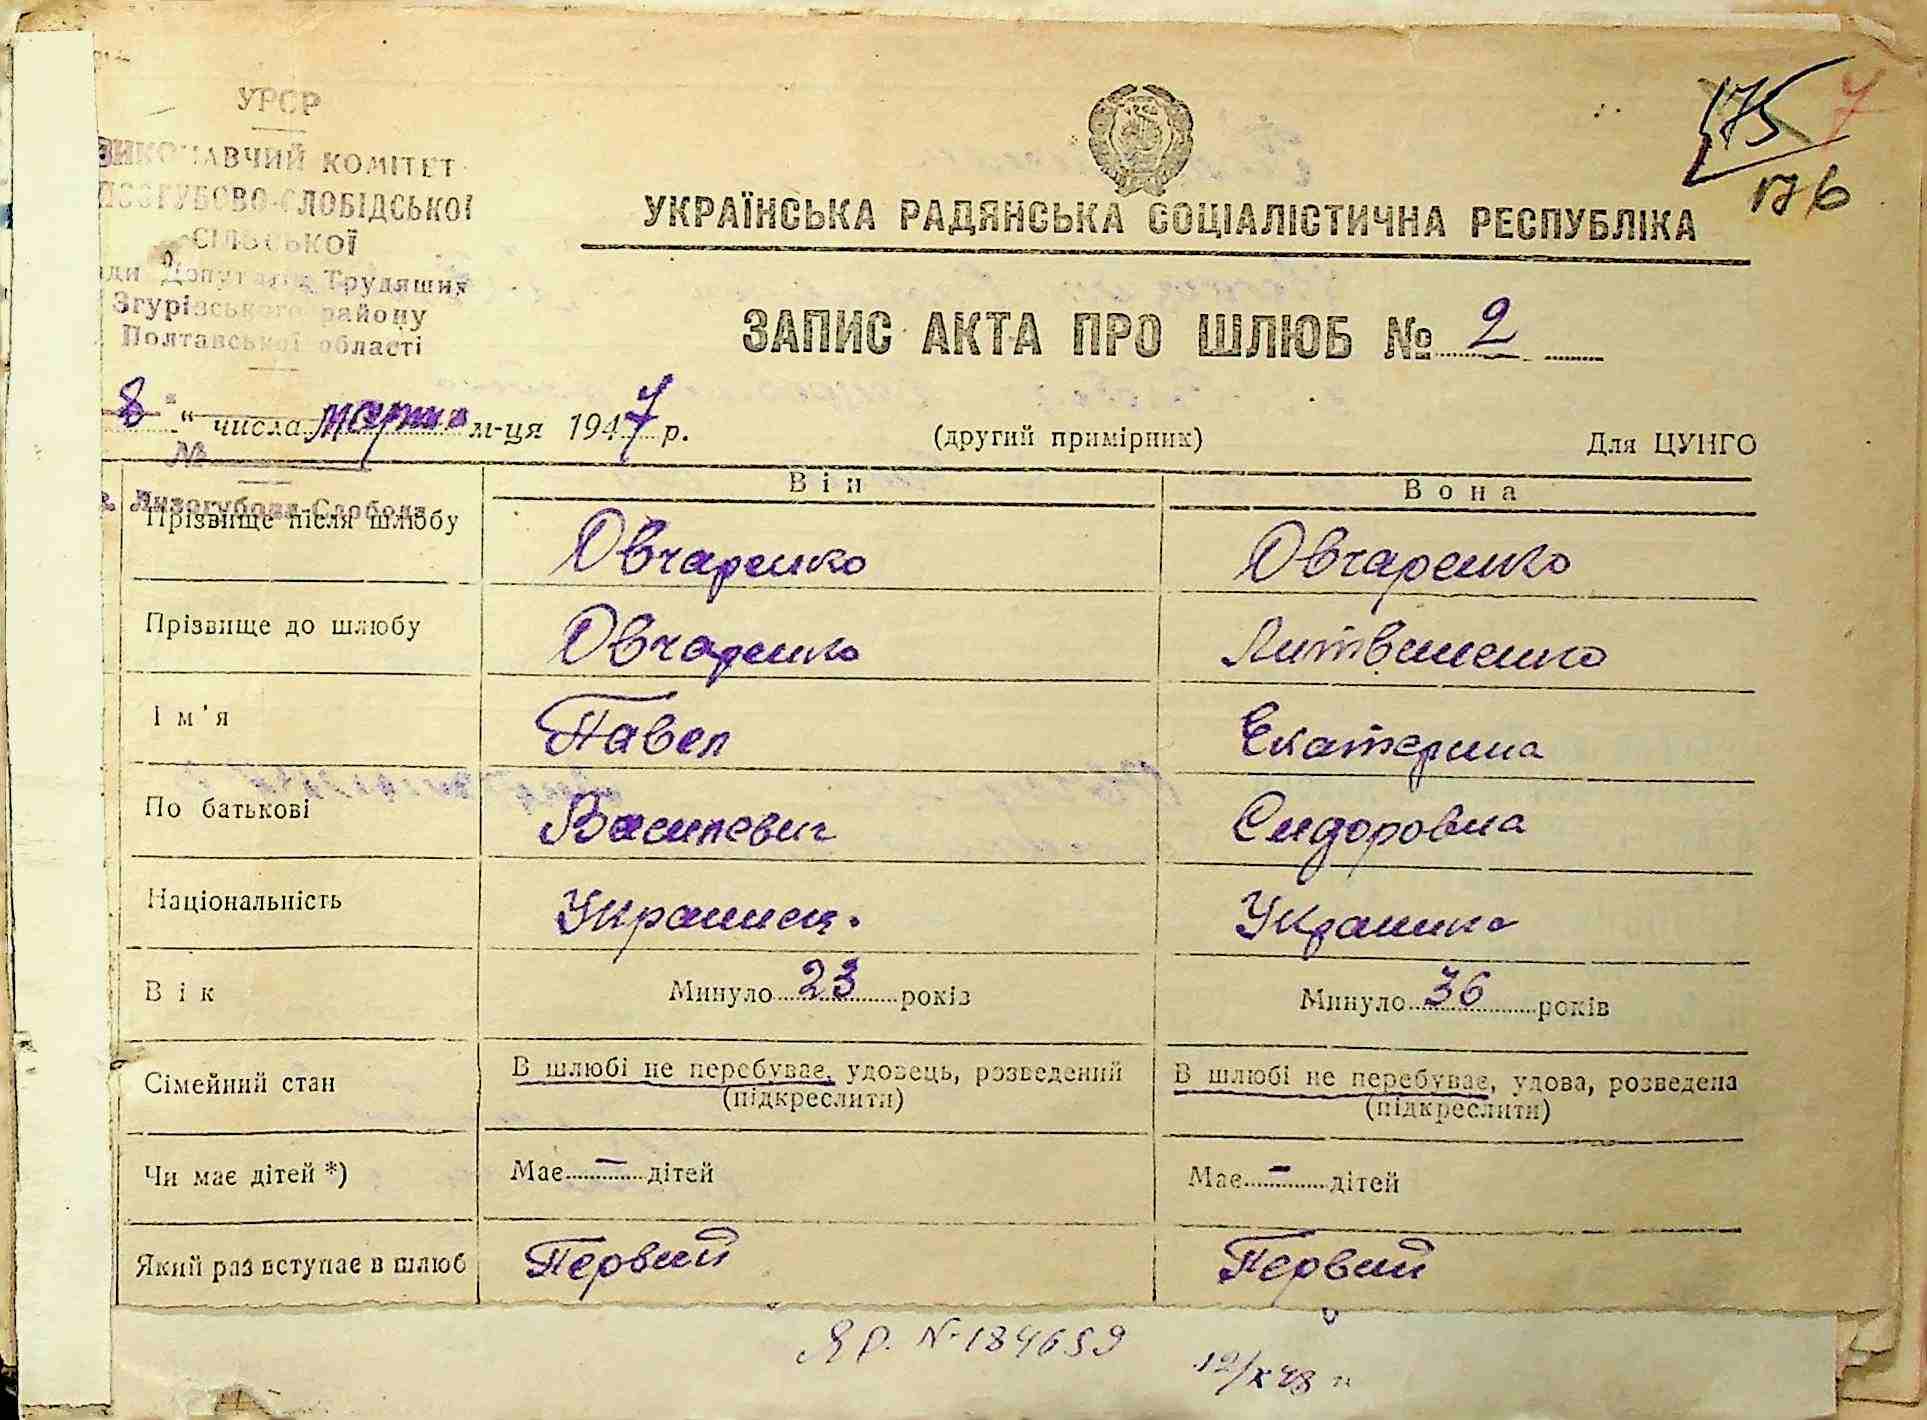 УРСР
ВИКОНАВЧИЙ КОМІТЕТ
ЛИЗОГУБОВО-СЛОБІДСЬКОЇ
СІЛЬСЬКОЇ
Ради Депутатів Трудящих
Згурівського району
Полтавської області
175 7
176
УКРАЇНСЬКА РАДЯНСЬКА СОЦІАЛІСТИЧНА РЕСПУБЛІКА
ЗАПИС АКТА ПРО ШЛЮБ № 2
8 " числа марта м-ця 1947 р. (другий примірник) Для ЦУНГО
№
с. Лизогубова-Слобода
Він Вона
Прізвище після шлюбу Овчаренко Овчаренко
Прізвище до шлюбу Овчаренко Литвененко
Ім'я Павел Екатерина
По батькові Василевич Сидоровна
Національність Украинец. Украинка
Вік Минуло 23 років Минуло 36 років
Сімейний стан В шлюбі не перебуває, удовець, розведений В шлюбі не перебуває, удова, розведена
(підкреслити) (підкреслити)
Чи має дітей *) Має — дітей Має — дітей
Який раз вступає в шлюб Первий Первий
ЯР. № 184659
12/X 48 г.